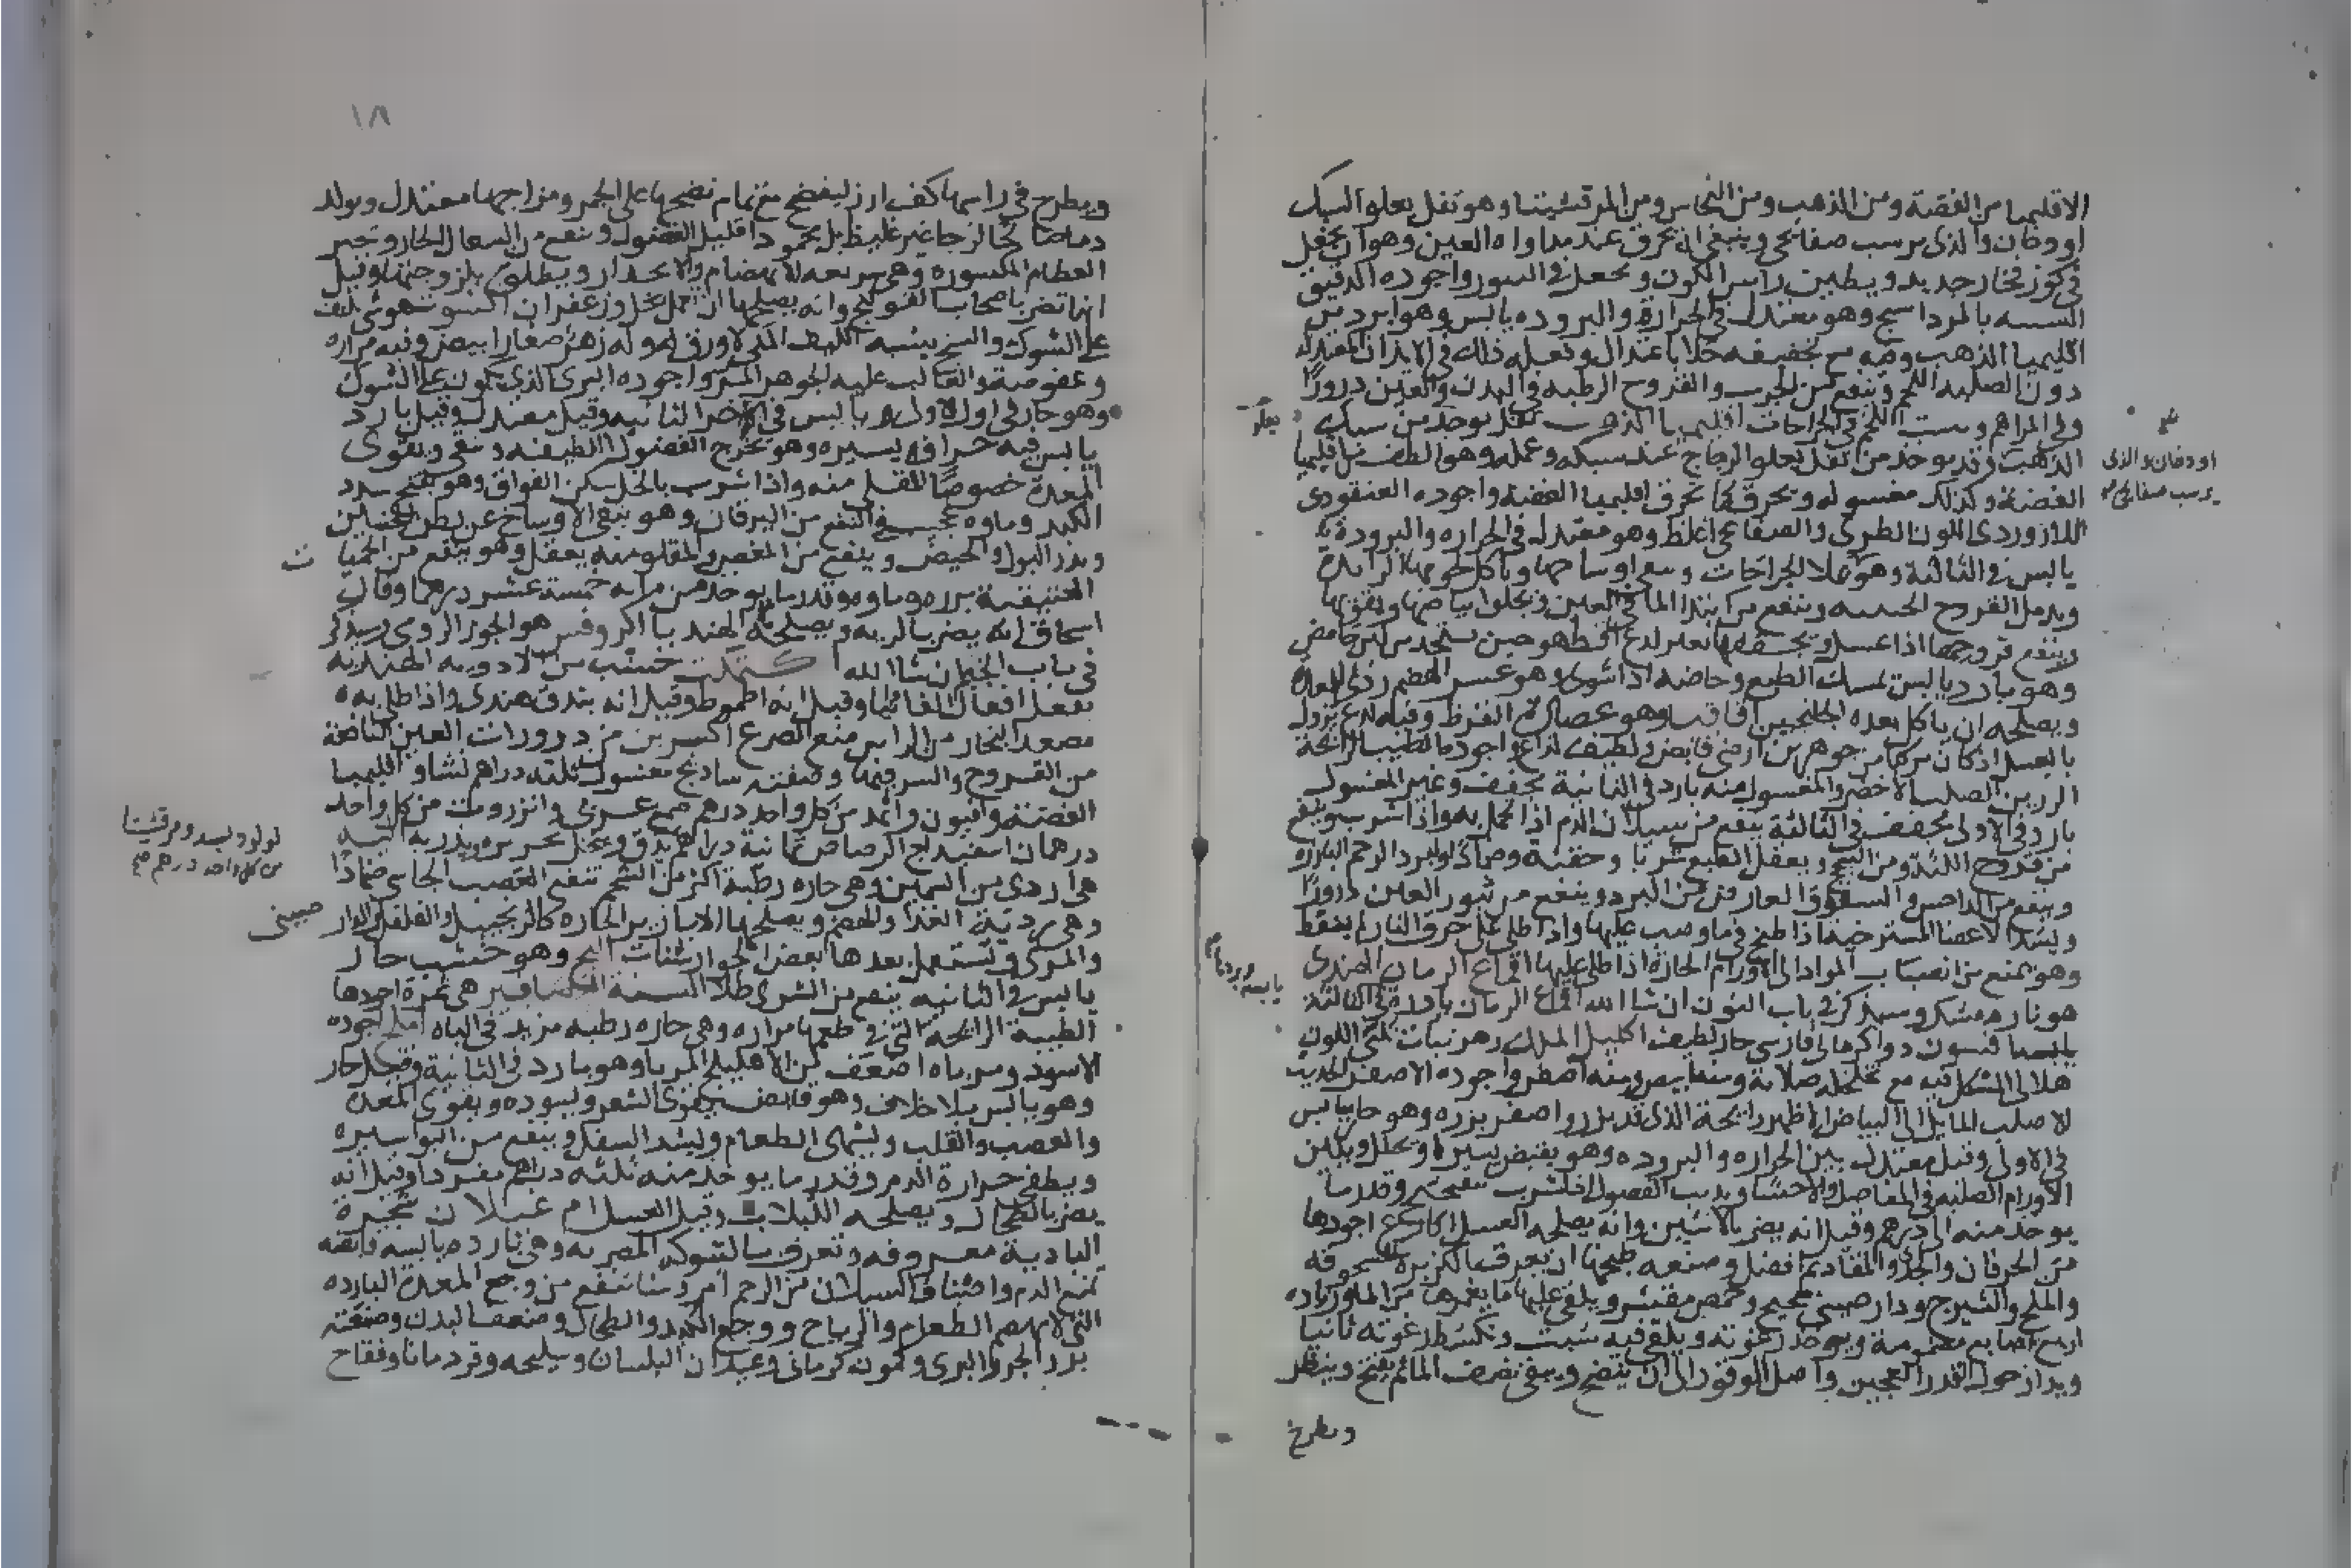 الاقليميا من الفضة ومن الذهب ومن النحاس ومن المرقشيتا وهو ثفل يعلو السبك
او دخان والذى يرسب صفايحى وينبغى ان يحرق عند مداواه العين وهو ان يجعل
فى كوز فخار جديد ويطين راس الكوز ويجعل فى التنور واجوده الدقيق
الشبيه بالمرداسنج وهو معتدل فى الحرارة والبروده يابس وهو ابرد من
اقليميا الذهب وفيه مع تجفيفه جلا باعتدال وفعله ذلك فى الابدان
دون الصلبه اللحم وينفع من الجرب والقروح الرطبه فى البدن والعين درورا
وفى المراهم وينبت اللحم فى الجراحات اقليميا الذهب ثفل يوخذ من سبك
الذهب وقد يوخذ من ثفل يعلو الزجاج عند سبكه وعمله وهو الطف من اقليميا
الفضة وكذلك مغسوله ويحرق كما تحرق اقليميا الفضه واجوده العنقودى
اللازوردى اللون الطرى والصفايحى اغلظ وهو معتدل فى الحراره والبرودة
يابس فى الثالثة وهو جلا الجراحات وياكل لحومها الزايدة
ويدمل القروح الخبيثه وينفع من ابتدا الما فى العين ويجلوا بياضها ويقويها
وينفع قروحها اذا غسل
وهو بارد يابس يمسك الطبع وخاصه اذا شوى وهو عسر الهضم ردى للمعدة
ويصلحه ان ياكل بعده الجلنجبين اقاقيا وهو عصارة القرظ وفيه لدع يزول
بالغسل اذ كان مركبا من جوهرين ارضى قابض ولطيف لداع واجوده الطيب الرايحة
الرزين الصلب الاخضر والمغسول منه بارد فى الثانية مجفف وغير المغسول
بارد فى الاولى مجفف فى الثالثة ينفع من سيلان الدم اذا تحمل به واذا شرب وينفع
من قروح اللثة ومن السحج ويعقل الطبع شربا وحقنة وضمادا
وينفع من الداحس والشقوق العارض من البرد وينفع من بثور العين درورا
ويشد الاعضا المسترخيه اذا طبخ فى ما وصب عليها واذا طلى على حرق النار لم ينفط
وهو يمنع من انصباب المواد الى الاورام الحارة اذا طلى عليها اقماع الرمان الهندى
هو نارمشك وسيذكر فى باب النون ان شا الله اقماع الرمان باردة فى الثالثة
دوا كرمانى فارسى حار لطيف اكليل الملك زهر نبات تبنى اللون
هلالى الشكل فيه مع تخلخله صلابة ومنه ابيض ومنه اصفر واجوده الاصفر الحديث
الاصلب المايل الى البياض الظهر رايحة الذى قد بزر واصفر بزره وهو حار يابس
فى الاولى وقيل معتدل بين الحراره والبروده وهو يقبض يسيرا ويحلل ويلين
الاورام الصلبه فى المفاصل والاحشا ويذيب الفضول اذا شرب وقدر ما
يوخذ منه الى درهم وقيل انه يضر بالانثيين وانه يصلحه العسل اكارع اجودها
من الخرفان والجدا والمقاديم افضل وصنعه طبخها ان يجد
والملح والشيرج ودارصينى صحيح وحمص مقشر ويلقى عليها ما يغمرها من الما وزياده
اربع اصابع مضمومة ويوخذ رغوته ويلقى فيه شبت وتكشط رغوته ثانيا
ويدار حول القدر العجين واصل الوقود الى ان ينضج ويبقى نصف الما ثم يفتح وينظر
ويطرح
يعلو
او دخان والذى
يرسب صفايحى صح
١٨
ويطرح فى راسها كف ارز لينضج مع تمام نضجها على الجمر ومزاجها معتدل ويولد
دما صالحا لزجا غير غليظ بل محمودا قليل الفضول وينفع من السعال الحار ويجبر
العظام المكسوره وهى سريعه الانهضام والانحدار ويطلق بلزوجتها وقيل
انها تضر باصحاب القولنج وانه يصلحها ان تعمل بخل وزعفران اكسوث هو شى يلتف
على الشوك والشجر يشبه الليف المكى لا ورق له وله زهر صغار ابيض وفيه مراره
وعفوصة والغالب عليه الجوهر المر واجوده البرى الذى يكون على الشوك
وهو حار فى اول الاولى يابس فى اخر الثانيه وقيل معتدل وقيل بارد
يابس فيه حرافه يسيره وهو يخرج الفضول اللطيفه وينقى ويقوى
المعدة خصوصا المقلى منه واذا شرب بالخل سكن الفواق وهو يفتح سدد
الكبد وماوه عجيب فى النفع من اليرقان وهو ينقى الاوساخ عن بطن الجنين
ويدر البول والحيض وينفع من المغص والمقلو منه يعقل وهو ينفع من الحميا ت
العتيقة بزره وماوه وقدر ما يوخذ من مايه خمسة عشر درهما وقال
اسحاق انه يضر بالريه ويصلحه الهندبا اكروفس هو الجوز الرومى وسيذكر
فى باب الجيم ان شا الله اكتمكت خشب من الادويه الهنديه
يفعل افعال الفاوانيا وقيل انه اطموط وقيل انه بندق هندى واذا طلى به
مصعد البخار من الراس منع الصرع اكسرين من درورات العين النافعة
من القروح والسرفيها وصفته سادنج مغسول ثلثه دراهم نشا واقليميا
الفضة وافيون واثمد من كل واحد درهم صمغ عربى وانزروت من كل واحد
درهمان اسفيداج الرصاص ثمانية دراهم يدق وينخل بحريره ويذر به اليه
هى اردى من السمين وهى حاره رطبة اكثر من الشحم تنفع العصب الجاسى ضمادا
وهى ردية الغذا والهضم ويصلحها الابازير الحاره كالزنجبيل والفلفل والدار صينى
والمرى ويستعمل بعدها بعض الجوارشنات النج وهو خشب حار
يابس فى الثانيه ينفع من الشرى طلا السنة العصافير هى ثمرة اجودها
الطيبة الرايحة التى فى طعمها مراره وهى حاره رطبه مزيد فى الباه املج اجوده
الاسود ومرباه اضعف من الاهليلج المربا وهو بارد فى الثانية وقيل حار
وهو يابس بلا خلاف وهو قابض يقوى الشعر ويسوده ويقوى المعدة
والعصب والقلب ويشهى الطعام ويشد السفل وينفع من البواسير
ويطفى حرارة الدم وقدر ما يوخذ منه ثلثه دراهم مفردا وقيل انه
يضر بالطحال ويصلحه اللبلاب وقيل العسل ام غيلان شجرة
البادية معروفه وتعرف بالشوكه المصريه وهى بارده يابسه قابضه
تمنع الدم واصناف السيلان من الرحم امروسيا تنفع من وجع المعدة البارده
التى لا تهضم الطعام والرياح ووجع الكبد والطحال وضعف البدن وصفته
بزر الجزر البرى وكمون كرمانى وعيدان البلسان وسليخه وقردمانا وفقاح
لولو وبسد ومرقشيتا
من كل واحد درهم صح